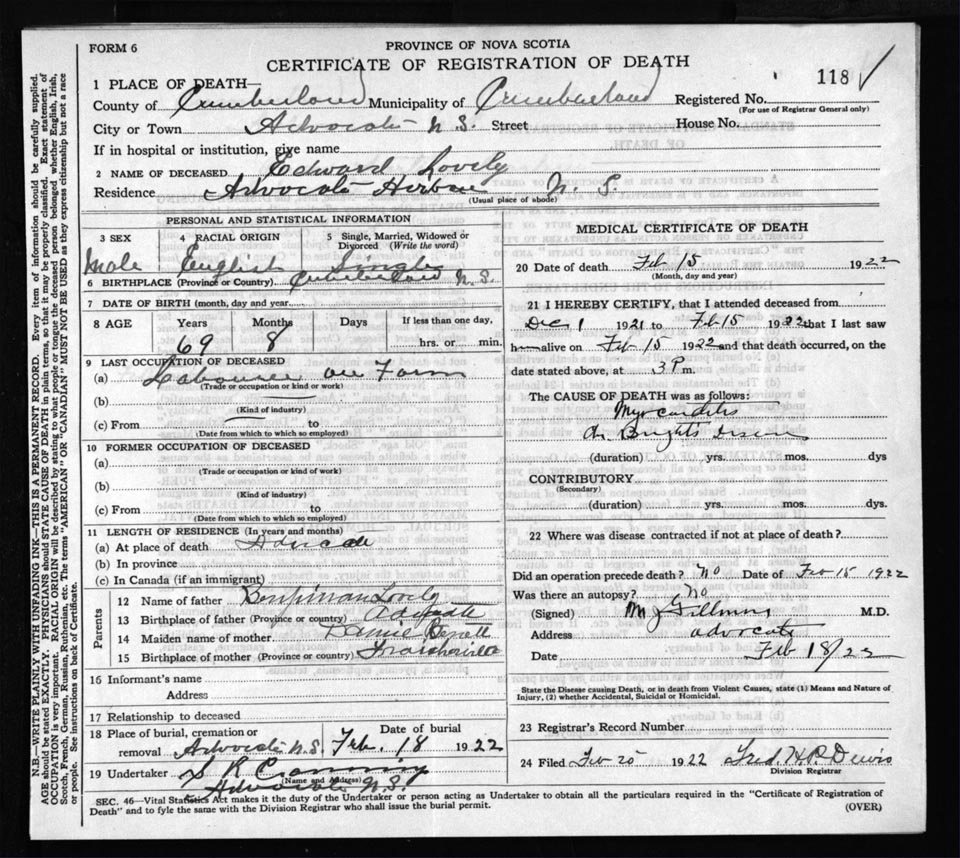 FORM 6
PROVINCE OF NOVA SCOTIA
CERTIFICATE OF REGISTRATION OF DEATH
118 ✓
1 PLACE OF DEATH—
County of Cumberland Municipality of Cumberland Registered No.
(For use of Registrar General only)
City or Town Advocate N.S. Street House No.
If in hospital or institution, give name
2 NAME OF DECEASED Edward Lovely
Residence Advocate Harbour N. S.
(Usual place of abode)
PERSONAL AND STATISTICAL INFORMATION
3 SEX 4 RACIAL ORIGIN 5 Single, Married, Widowed or
Divorced (Write the word)
Male English Single
6 BIRTHPLACE (Province or Country) Cumberland N.S.
7 DATE OF BIRTH (month, day and year)
8 AGE Years Months Days If less than one day,
69 8 hrs. or min.
9 LAST OCCUPATION OF DECEASED
(a) Labourer on Farm
(Trade or occupation or kind of work)
(b)
(Kind of industry)
(c) From to
(Date from which to which so employed)
10 FORMER OCCUPATION OF DECEASED
(a)
(Trade or occupation or kind of work)
(b)
(Kind of industry)
(c) From to
(Date from which to which so employed)
11 LENGTH OF RESIDENCE (In years and months)
(a) At place of death
(b) In province
(c) In Canada (if an immigrant)
Parents
12 Name of father Benjiman Lovely
13 Birthplace of father (Province or country) Advocate
14 Maiden name of mother
15 Birthplace of mother (Province or country)
16 Informant's name
Address
17 Relationship to deceased
18 Place of burial, cremation or Date of burial
removal Advocate N.S. Feb. 18 1922
19 Undertaker S R
(Name and Address)
Advocate N.S.
MEDICAL CERTIFICATE OF DEATH
20 Date of death Feb 15 1922
(Month, day and year)
21 I HEREBY CERTIFY, that I attended deceased from
Dec 1 1921 to Feb 15 1922 that I last saw
h alive on Feb 15 1922 and that death occurred, on the
date stated above, at 3 P m.
The CAUSE OF DEATH was as follows:
Myocarditis
Brights Disease
(duration) yrs. mos. dys
CONTRIBUTORY
(Secondary)
(duration) yrs. mos. dys
22 Where was disease contracted if not at place of death?
Did an operation precede death? No Date of Feb 15 1922
Was there an autopsy? No
(Signed) M D.
Address advocate
Date Feb 18/22
State the Disease causing Death, or in death from Violent Causes, state (1) Means and Nature of
Injury, (2) whether Accidental, Suicidal or Homicidal.
23 Registrar's Record Number
24 Filed Feb 20 1922 Fred. Dewis
Division Registrar
SEC. 46—Vital Statistics Act makes it the duty of the Undertaker or person acting as Undertaker to obtain all the particulars required in the "Certificate of Registration of
Death" and to fyle the same with the Division Registrar who shall issue the burial permit.
(OVER)
N.B.—WRITE PLAINLY WITH UNFADING INK—THIS IS A PERMANENT RECORD. Every item of information should be carefully supplied.
AGE should be stated EXACTLY. PHYSICIANS should STATE CAUSE OF DEATH in plain terms, so that it may be properly classified. Exact statement of
OCCUPATION is very important. RACIAL ORIGIN will be described by stating to what people or tongue the deceased person belonged, whether English, Irish,
Scotch, French, German, Russian, Ruthenian, etc. The terms "AMERICAN" OR "CANADIAN" MUST NOT BE USED as they express citizenship but not a race
or people. See instructions on back of Certificate.